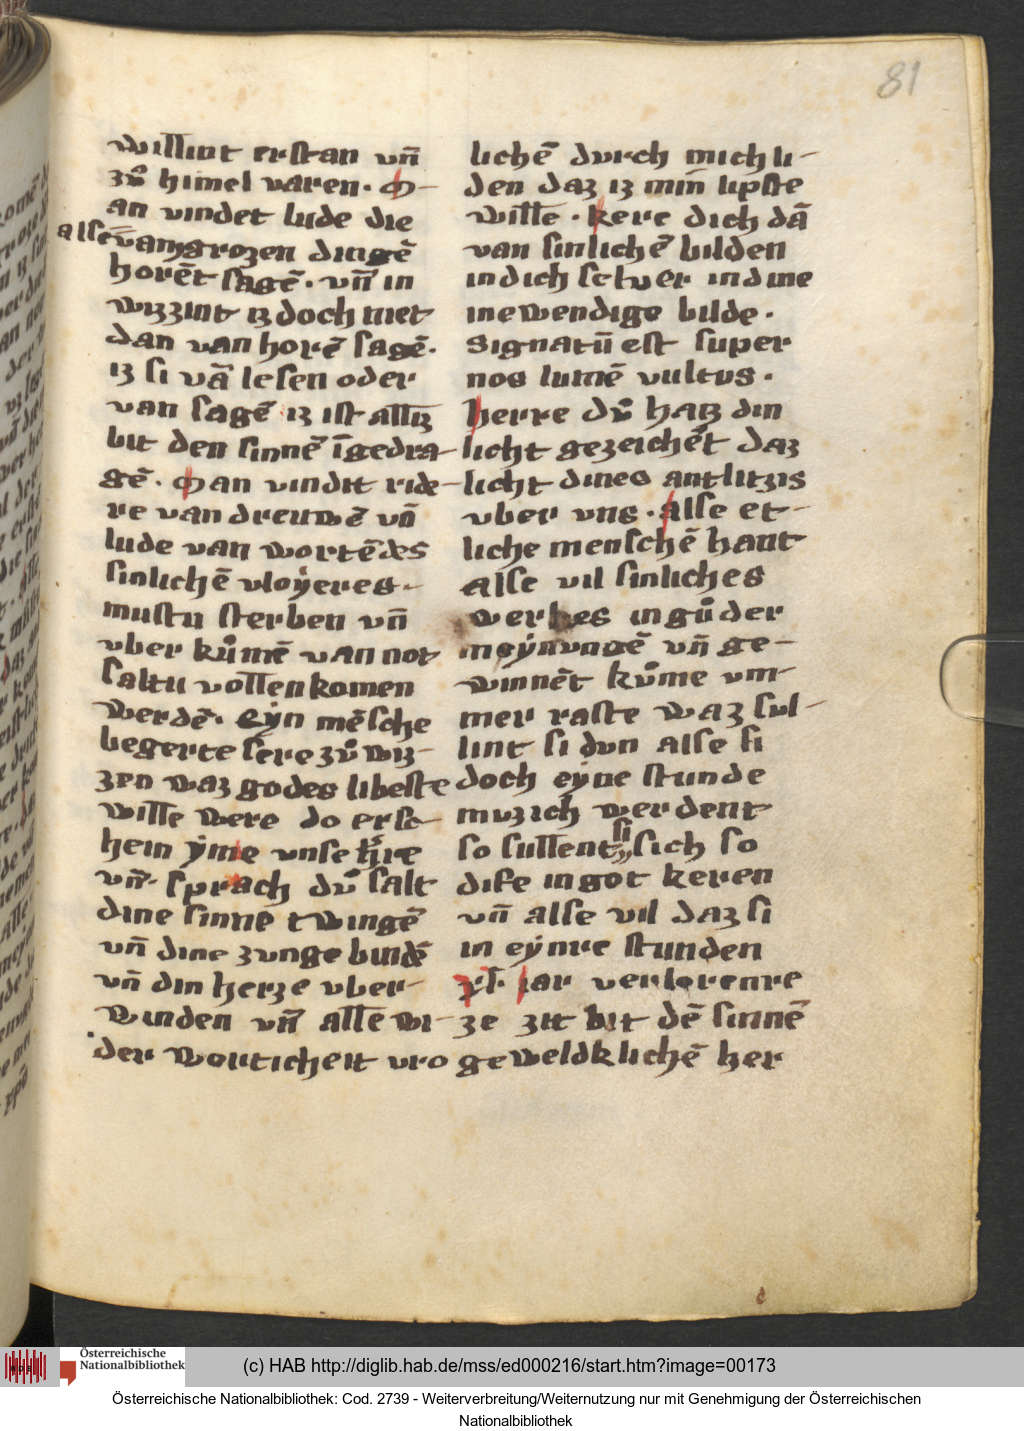 81
willint erstan vn̄
zů himel varen · M–
an vindet lude die
alse van grozen dingē
horēt sagē · vn̄ in
wizzint iz doch niet
dan van horē sagē·
iz si vā lesen oder
van sagē · iz ist alliz
bit den sinnē īgedra–
gē · Man vindit ride–
re van dreuwē vn̄
lude van wortē des
sinlichē vloẏeres ·
mustu sterben vn̄
vber kůmē van not
saltu vollenkomen
werdē · Eẏn mēsche
begerte sere zů wiz–
zen waz godes libeste
wille were do ersc–
hein ẏme vnse h're
vn̄ · sprach dů salt
dine sinne twingē
vn̄ dine zunge bindē
vn̄ din herze vber–
winden vn̄ alle wi–
der worticheit vro
lichē durch mich li–
den daz iz min̄ lipste
wille · kere dich dā
van sinlichē bilden
in dich selver in dine
inewendige bilde ·
Signatū est super
nos lumē vultus ·
herre dů haiz din
licht gezeichēt daz
licht dines antlitzis
vber vns · alse et–
liche menschē hant
alse vil sinliches
werkes in gůder
meẏnungē vn̄ ge–
winnēt kůme um–
mer raste waz sul–
lint si dun alse si
doch eẏne stunde
muzich werdent
so sullent si sich so
dife in got keren
vn̄ alse vil daz si
in eẏnre stunden
xl· iar verlorenre
ze zit bit dē sinnē
geweldklichē her
Österreichische
Nationalbibliothek
(c) HAB http://diglib.hab.de/mss/ed000216/start.htm?image=00173
Österreichische Nationalbibliothek: Cod. 2739 - Weiterverbreitung/Weiternutzung nur mit Genehmigung der Österreichischen
Nationalbibliothek